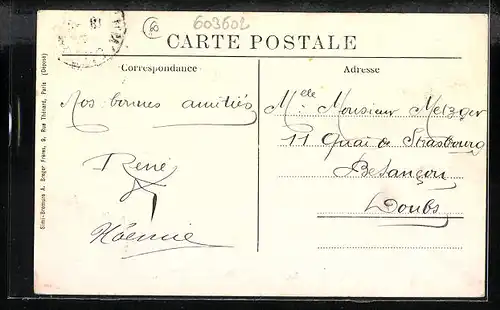 603602
CARTE POSTALE
Correspondance
Adresse
Nos bonnes amitiés
René
Mlle Monsieur Metzger
11 Quai de Strasbourg
Besançon
Doubs
Simi-Bromure A. Breger Frères, 9, Rue Thénard, Paris (Déposé)